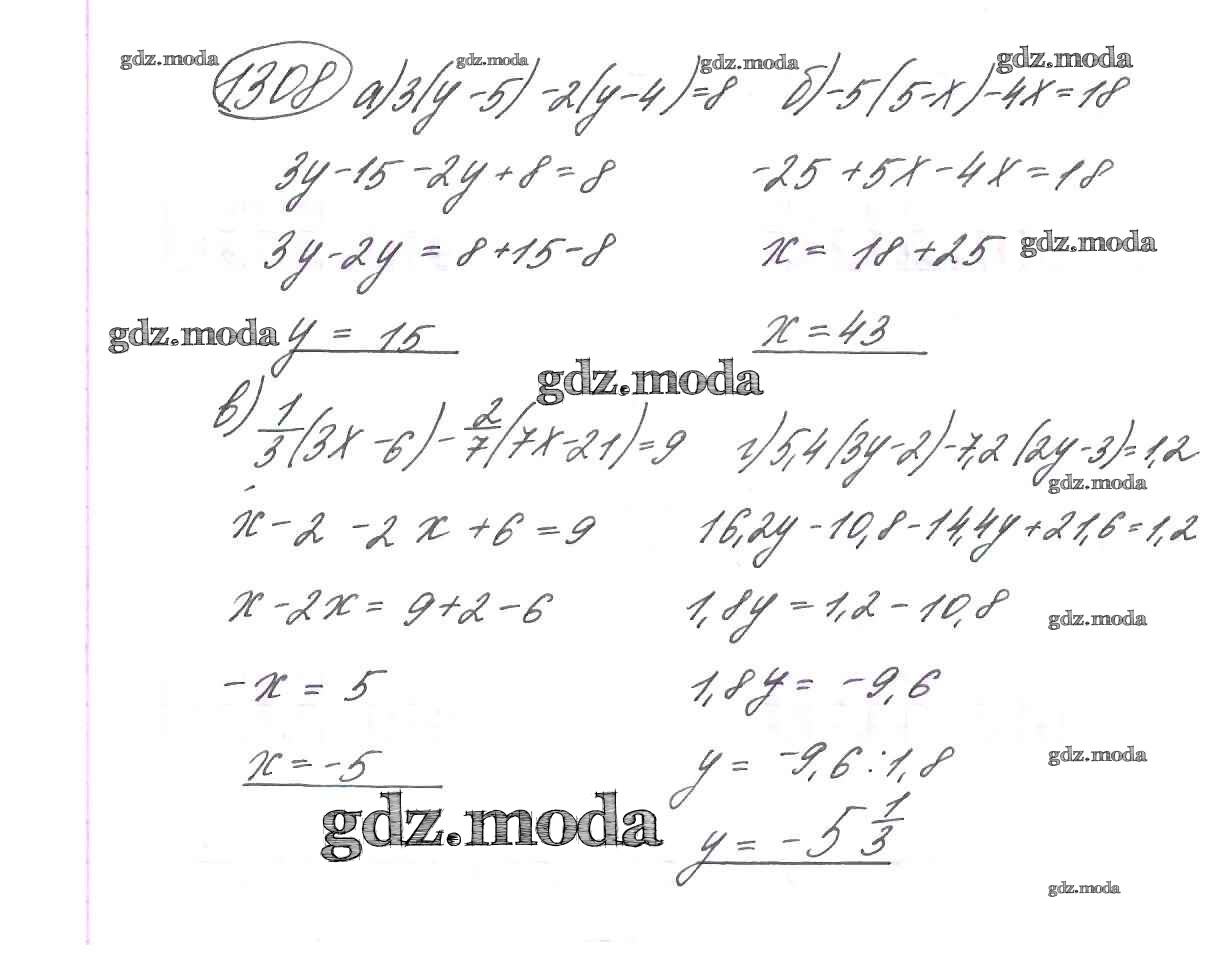 gdz.moda gdz.moda gdz.moda gdz.moda
1308 а) 3(y-5)-2(y-4)=8 б) -5(5-x)-4x=18
3y-15-2y+8=8 -25+5x-4x=18
3y-2y=8+15-8 x=18+25 gdz.moda
gdz.moda y=15 x=43
gdz.moda
в) 1/3(3x-6)-2/7(7x-21)=9 г) 5,4(3y-2)-7,2(2y-3)=1,2
gdz.moda
x-2-2x+6=9 16,2y-10,8-14,4y+21,6=1,2
x-2x=9+2-6 1,8y=1,2-10,8 gdz.moda
-x=5 1,8y=-9,6
x=-5 y=-9,6:1,8 gdz.moda
gdz.moda y=-5 1/3
gdz.moda